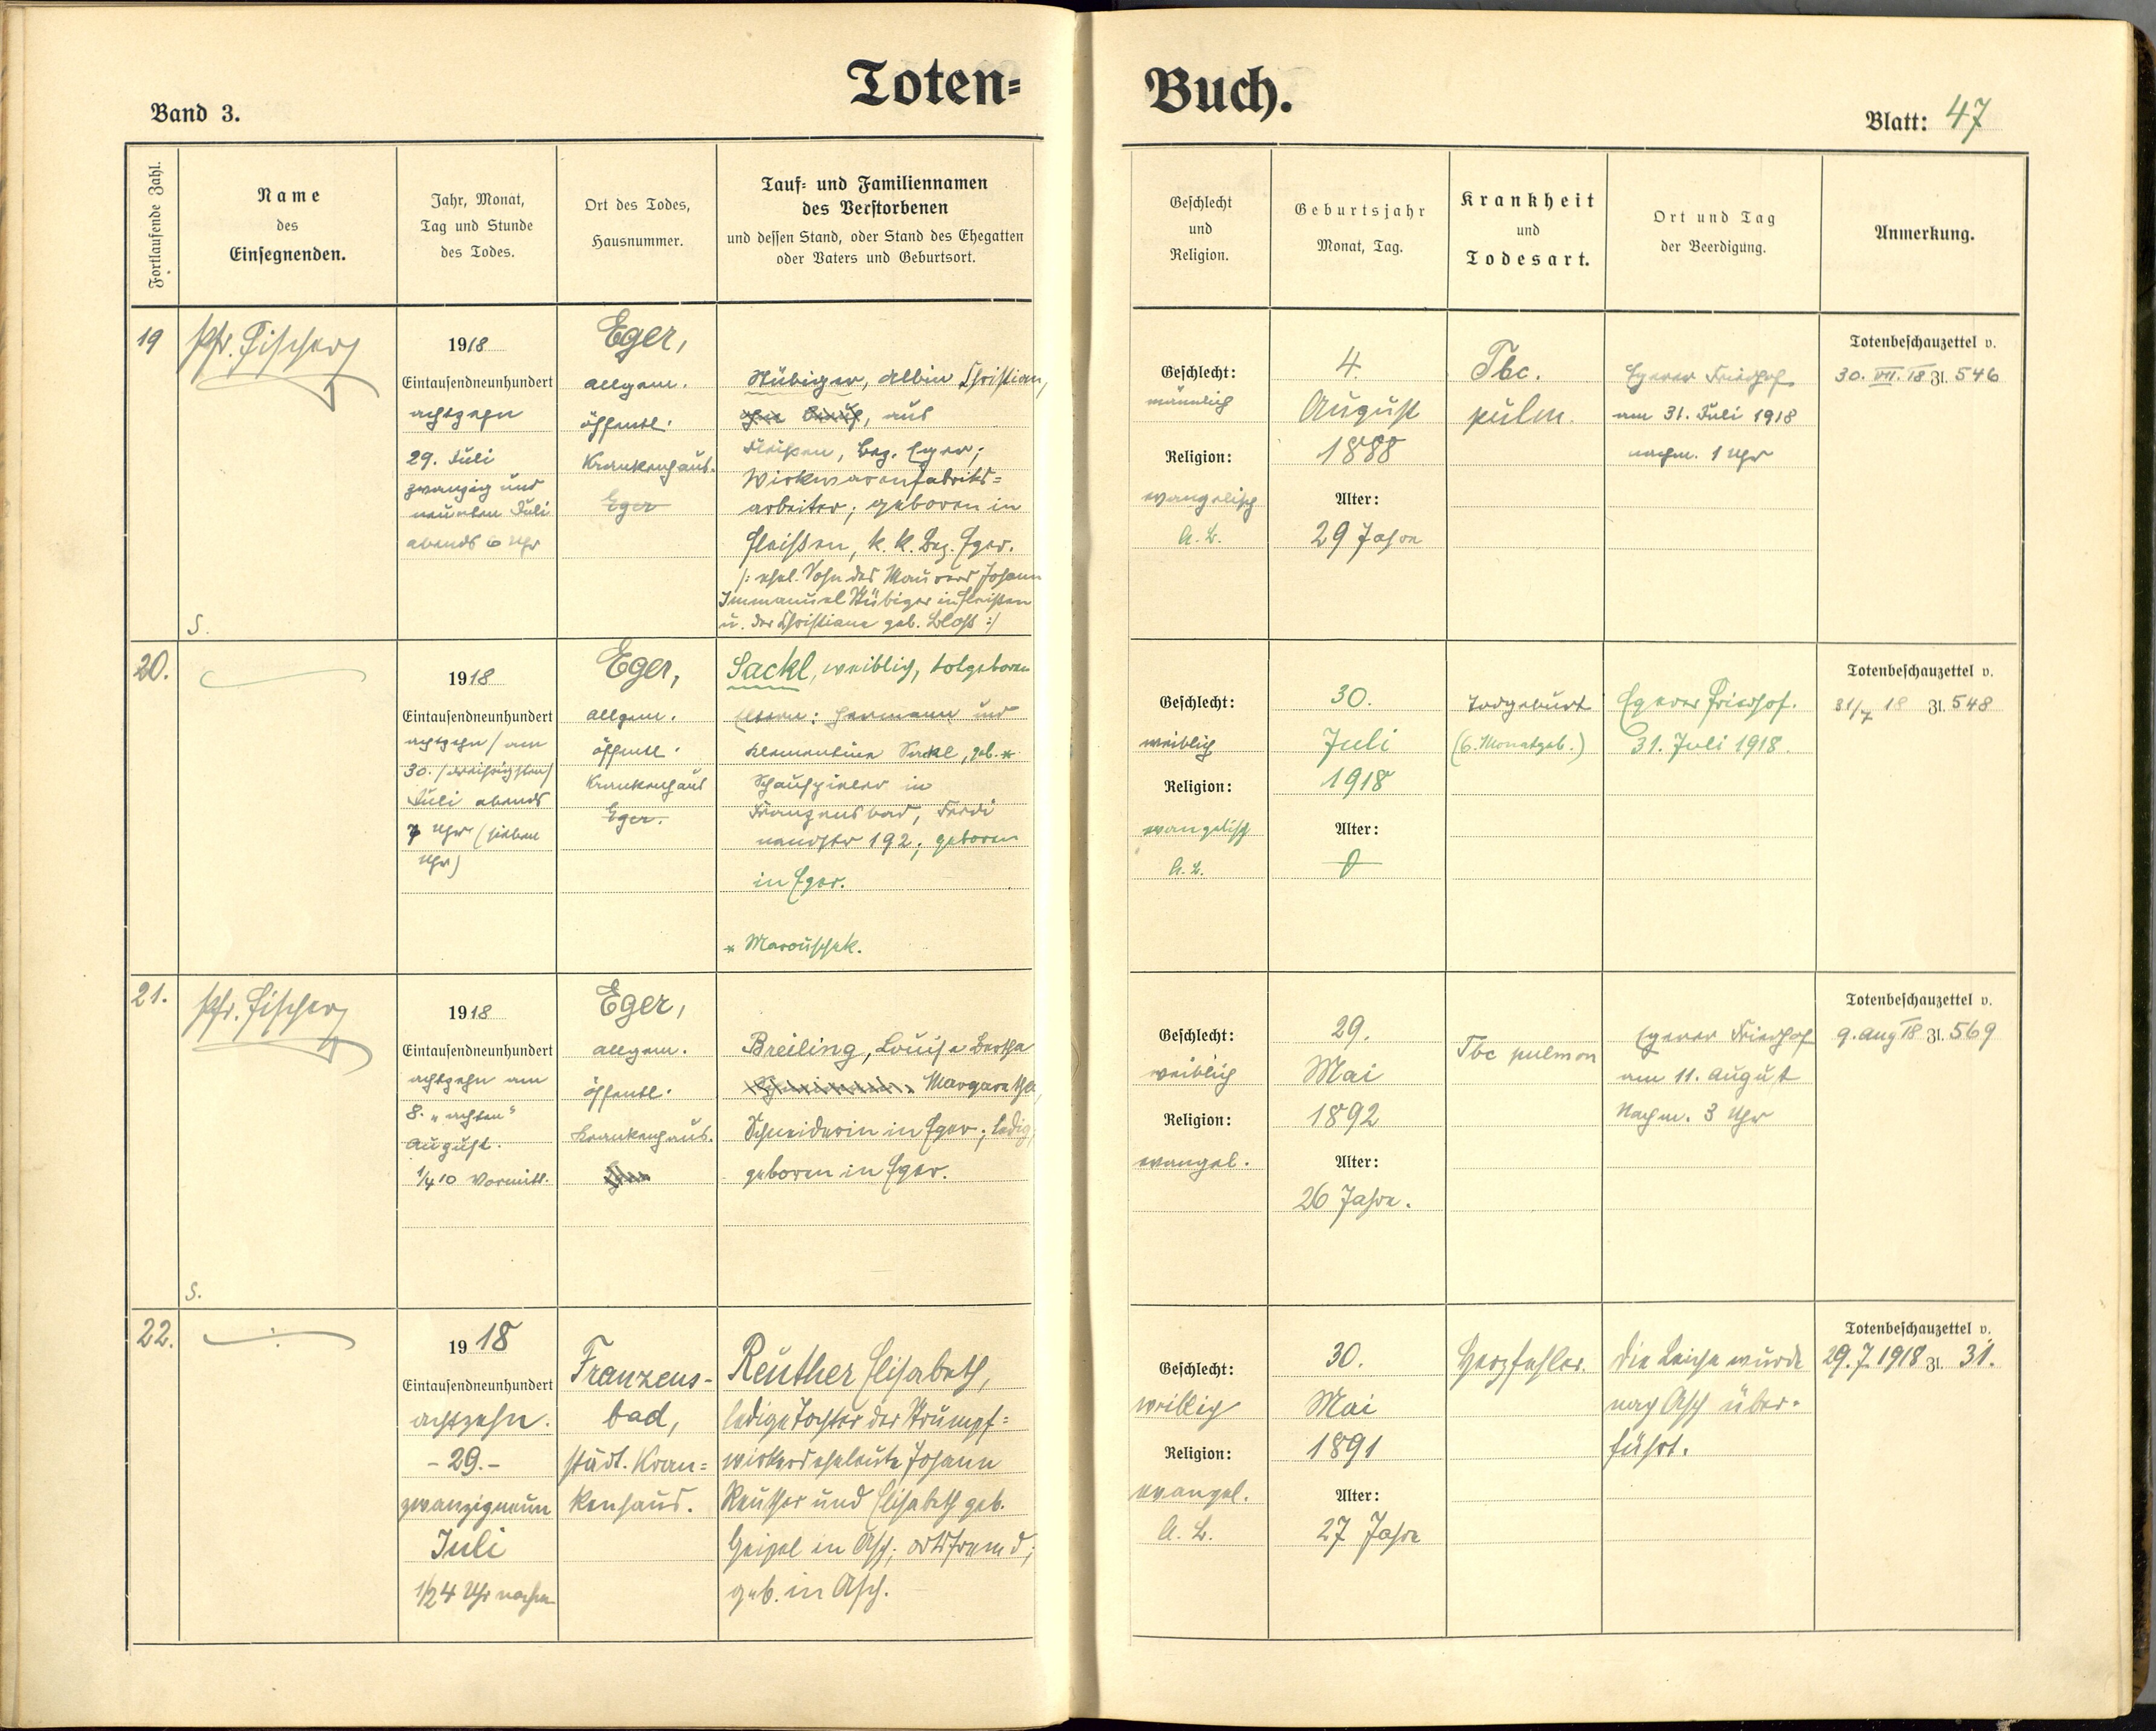 Toten=
Buch.
Band 3.
Blatt: 47
Fortlaufende Zahl.
Name
des
Einsegnenden.
Jahr, Monat,
Tag und Stunde
des Todes.
Ort des Todes,
Hausnummer.
Tauf= und Familiennamen
des Verstorbenen
und dessen Stand, oder Stand des Ehegatten
oder Vaters und Geburtsort.
Geschlecht
und
Religion.
Geburtsjahr
Monat, Tag.
Krankheit
und
Todesart.
Ort und Tag
der Beerdigung.
Anmerkung.
19
Pfr. Fischer
S.
1918
Eintausendneunhundert
achtzehn
29. Juli
zwanzig und
neunten Juli
abends 6 Uhr
Eger,
allgem.
öffentl.
Krankenhaus.
Eger
Stübiger, Albin Christian,
aus
Fleißen, Bez. Eger;
Wirkwarenfabriks=
arbeiter; geboren in
Fleißen, k. k. Bez. Eger.
/: ehel. Sohn des Maurers Johann
Immanuel Stübiger in Fleißen
u. der Christiane geb. Bloß :/
Geschlecht:
männlich
Religion:
evangelisch
A. B.
4.
August
1888
Alter:
29 Jahre
Tbc.
pulm.
Egerer Friedhof
am 31. Juli 1918
nachm. 1 Uhr
Totenbeschauzettel v.
30. VII. 18 Zl. 546
20.
1918
Eintausendneunhundert
achtzehn / am
30. /dreißigsten/
Juli abends
7 Uhr (sieben
Uhr)
Eger,
allgem.
öffentl.
Krankenhaus
Eger.
Sackl, weiblich, totgeboren
Eltern: Hermann und
Klementine Sackl, geb. *
Schauspieler in
Franzensbad, Ferdi
nandstr 192; geboren
in Eger.
* Marouschek.
Geschlecht:
weiblich
Religion:
evangelisch
A. B.
30.
Juli
1918
Alter:
0
Todgeburt
(6. Monatgeb.)
Egerer Friedhof.
31. Juli 1918.
Totenbeschauzettel v.
31/7 18 Zl. 548
21.
Pfr. Fischer
S.
1918
Eintausendneunhundert
achtzehn am
8. „achten“
August.
1/4 10 Vormitt.
Eger,
allgem.
öffentl.
Krankenhaus.
Breiling, Louise Bertha
Margarethe,
Schneiderin in Eger; ledig;
geboren in Eger.
Geschlecht:
weiblich
Religion:
evangel.
29.
Mai
1892
Alter:
26 Jahre.
Tbc pulmon
Egerer Friedhof
am 11. August
Nachm. 3 Uhr
Totenbeschauzettel v.
9. Aug 18 Zl. 569
22.
1918
Eintausendneunhundert
achtzehn.
- 29. -
zwanzigneun
Juli
1/2 4 Uhr nachm
Franzens-
bad,
städt. Kran=
kenhaus.
Reuther Elisabeth,
ledige Tochter der Strumpf=
wirkerseheleute Johann
Reuther und Elisabeth geb.
Geipel in Asch; ortsfremd;
geb. in Asch.
Geschlecht:
weiblich
Religion:
evangel.
A. B.
30.
Mai
1891
Alter:
27 Jahre
Herzfehler.
Die Leiche wurde
nach Asch über-
führt.
Totenbeschauzettel v.
29.7.1918 Zl. 31.